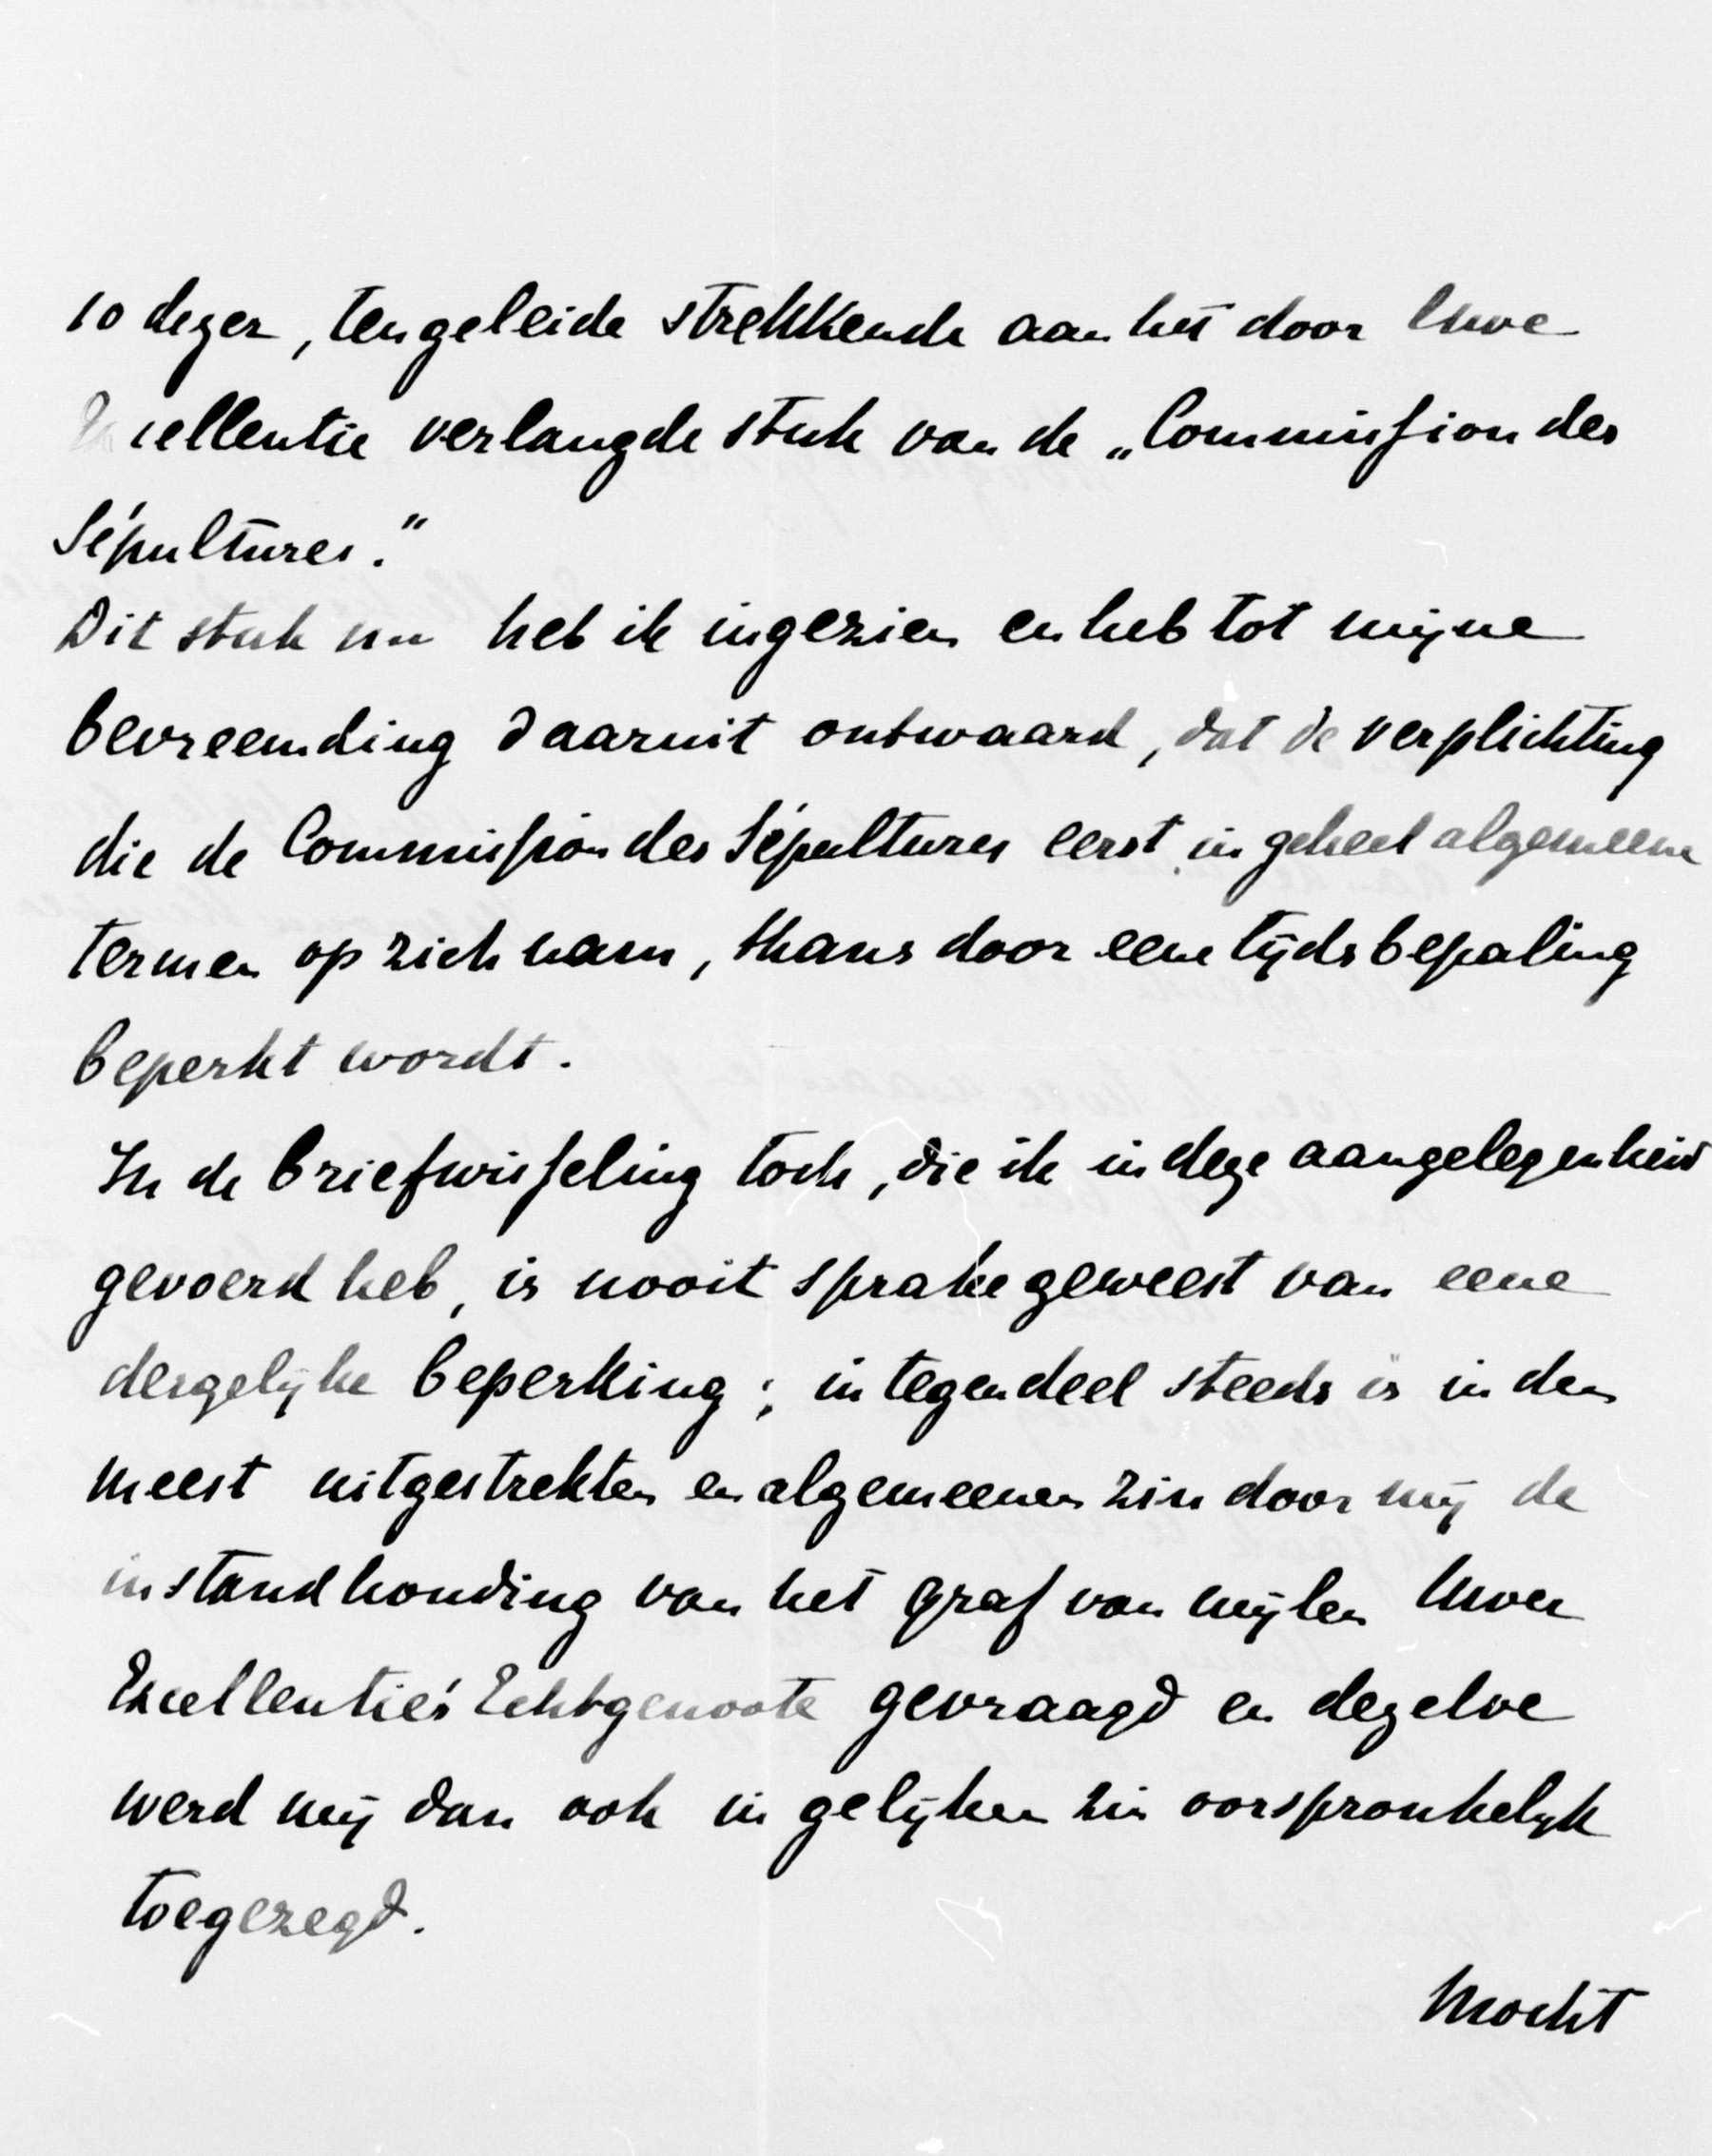 10 dezer, ten geleide strekkende aan het door Uwe
Excellentie verlangde stuk van de „Commission des
Sépultures.”
Dit stuk nu heb ik ingezien en heb tot mijne
bevreemding daaruit ontwaard, dat de verplichting
die de Commission des Sépultures eerst in geheel algemeene
termen op zich nam, thans door eene tijdsbepaling
beperkt wordt.
In de briefwisseling toch, die ik in deze aangelegenheid
gevoerd heb, is nooit sprake geweest van eene
dergelijke beperking; integendeel steeds is in den
meest uitgestrekten en algemeenen zin door mij de
instandhouding van het graf van wijlen Uwer
Excellentie's Echtgenoote gevraagd en dezelve
werd mij dan ook in gelijken zin oorspronkelijk
toegezegd.
Mocht